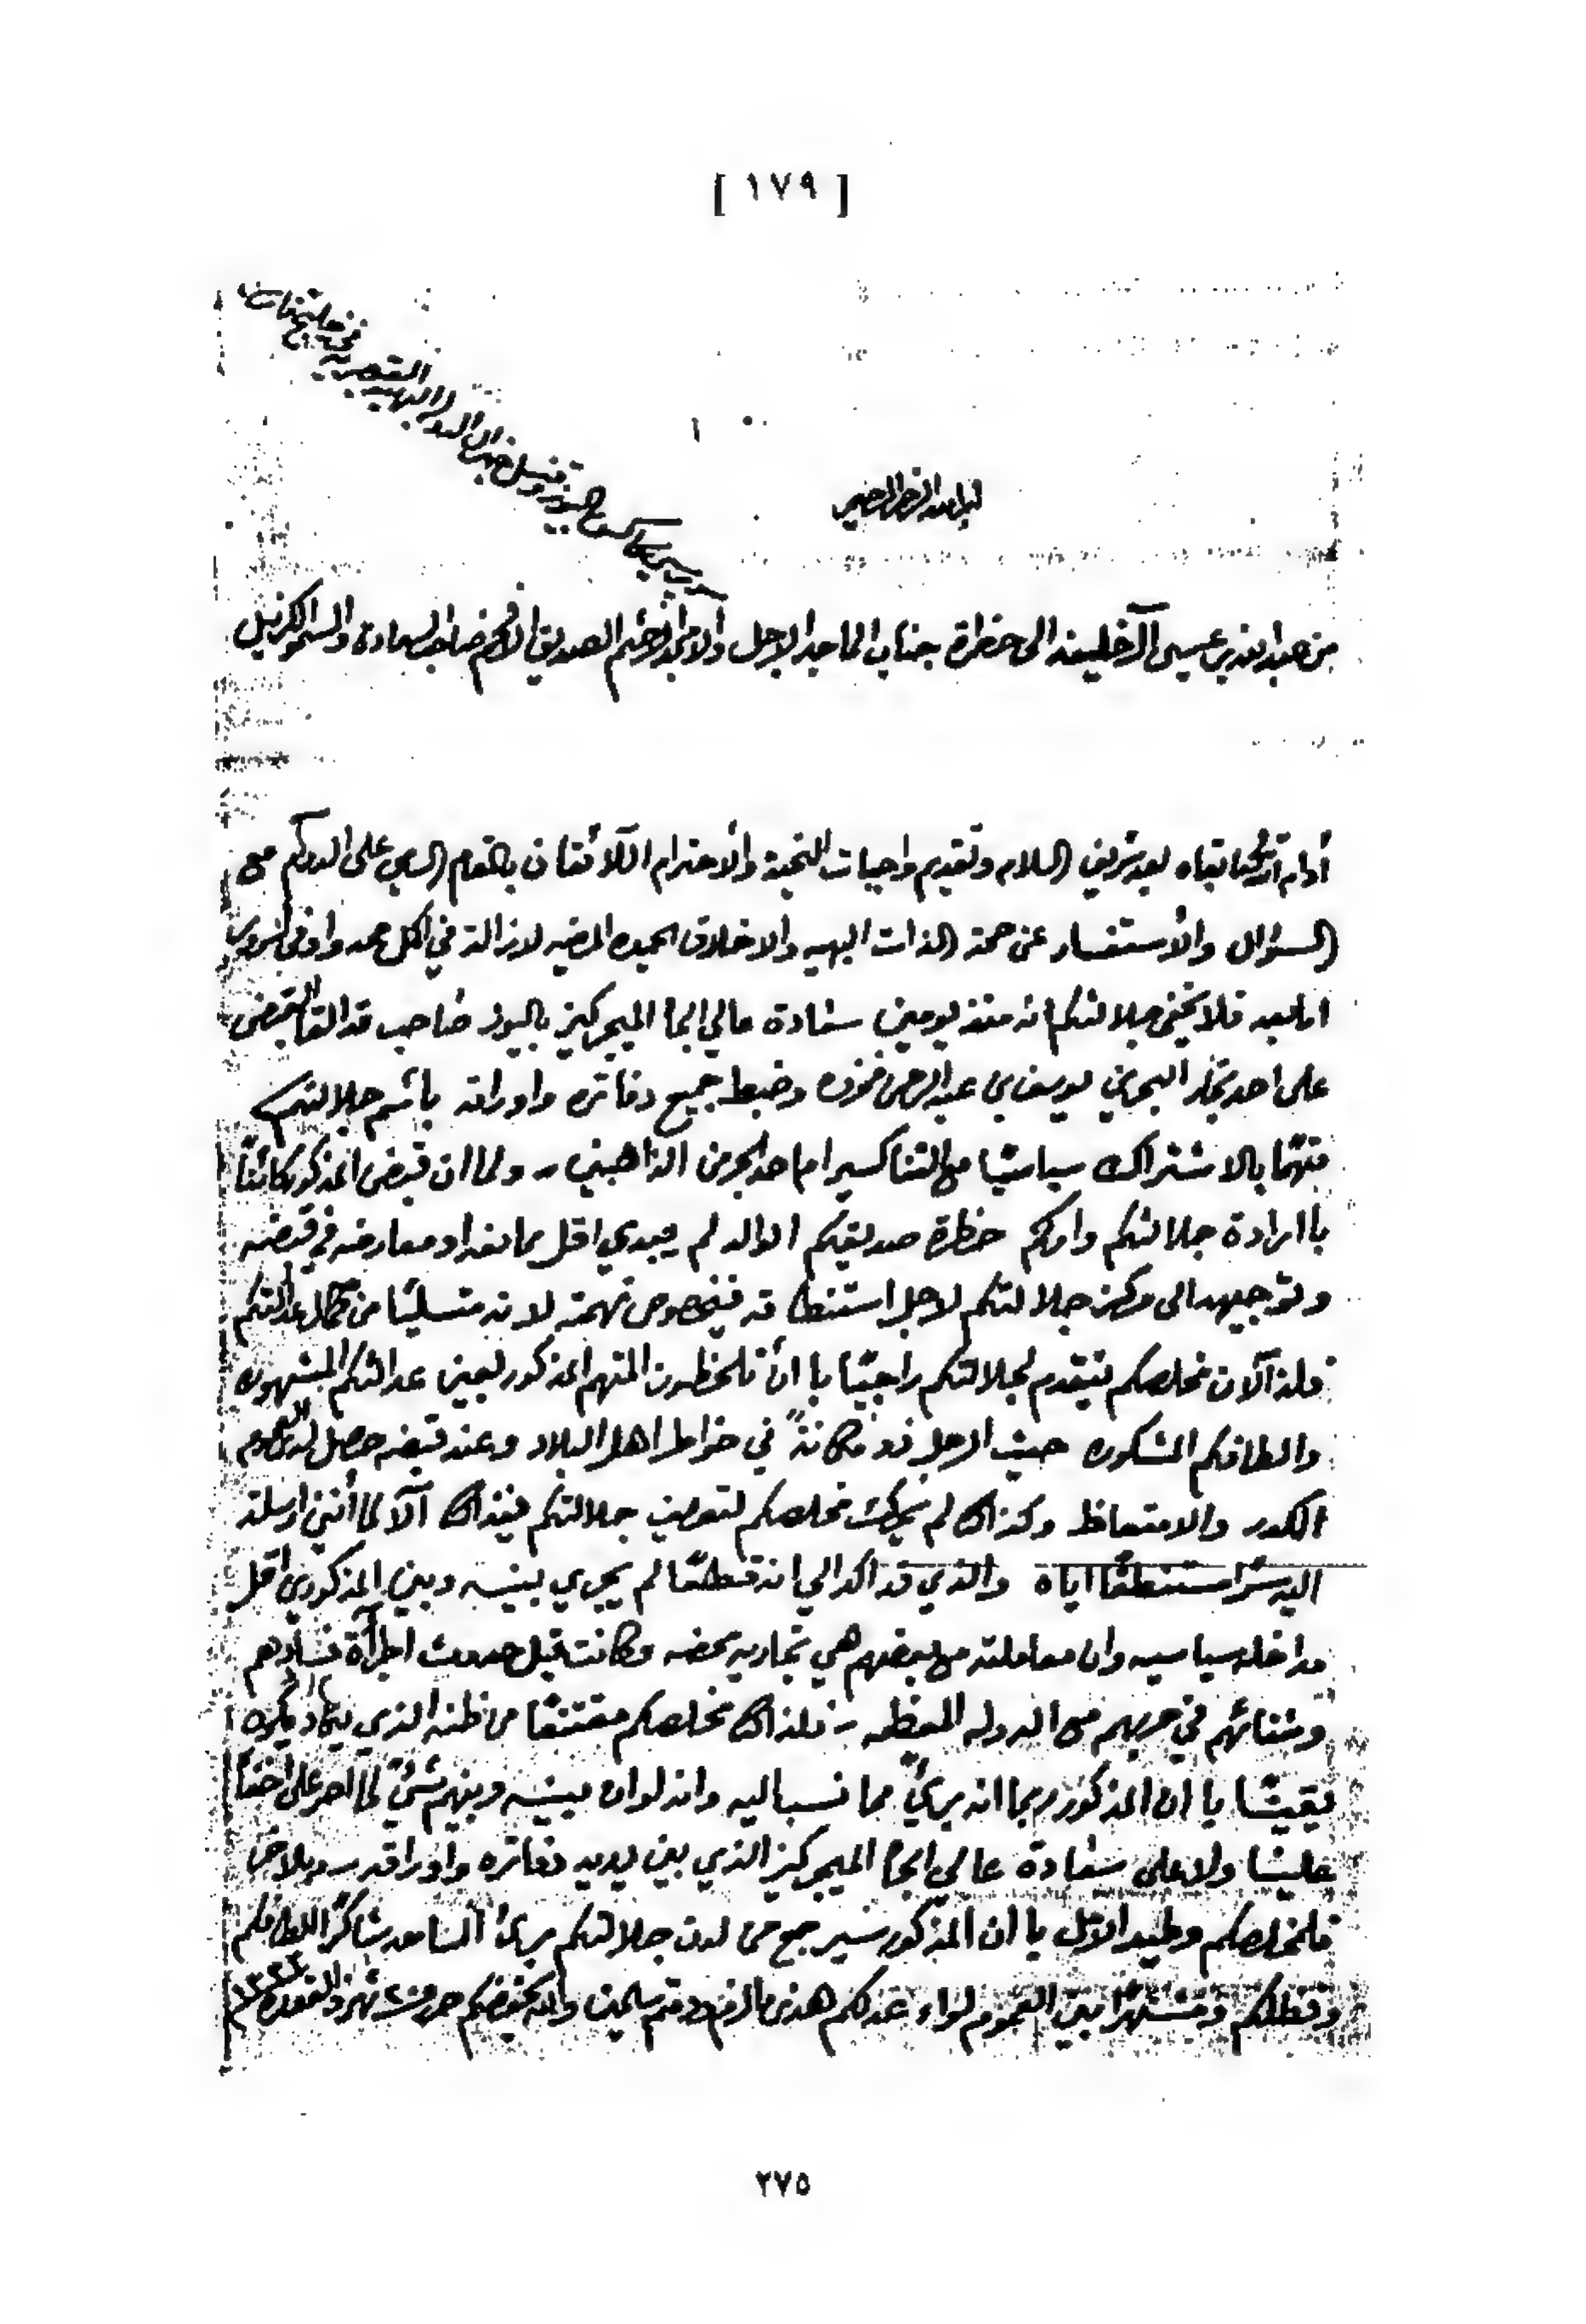 [ ١٧٩ ]
بسم الله الرحمن الرحيم
قونسل جنرال الدولة البهية القيصرية في خليج فارس
من عبد الله بن عيسى آل خليفه الى حظرة جناب الماجد الاجل والامجد الافخم الصديق الاكرم صاحب السعادة والسمو الكرنيل
أدام الله بقاه بعد شريف السلام وتقديم واجبات التحية والأحترام اللآئقان بالمقام السامي على الدوام مع
السؤال والأستفسار عن صحة الذات البهيه والاخلاق الحميده المرضيه لازالة في اكمل صحه واوفى سرور
اما بعد فلا يخفى جلالتكم انه منذ يومين سعادة عالي الجا الميجر كيز باليوز صاحب قد القا القبض
على احد تجار البحرين يوسف بن عبد الرحمن فخرو وضبط جميع دفاتره واوراقه بأسم جلالتكم
متهمًا بالاشتراك سياسيًا مع التنا كسير ام احد الجرمن الذاهبين – ولما ان قبض المذكور كائنًا
باارادة جلالتكم وامركم حظرة صديقكم الوالد لم يبدي اقل ممانعه او معارضه في قبضه
وتوجيهه الى مركز جلالتكم لاجل استنطاقه فيخصوص تهمته لانه متسليًا من كمال عدالتكم
فلذ الآن مخلصكم يتقدم لجلالتكم راجيًا باأن تلحظون المتهم المذكور بعين عدالتكم المشهوره
والطافكم المشكوره حيث الرجل ذو مكانةً في خواطر اهل البلاد وعند قبضه حصل لدى العموم
الكدر والامتعاظ وكذالك لم مخلصكم لتعريف جلالتكم فيذالك الآ لما أنني ارسلت
اليه سرًا مستنطقًا اياه والذي قد اكد الي انه قطعًا لم يجري بينه وبين المذكورين اقل
مداخله سياسيه وان معاملته مع بعضهم هي تجاريه محضه وكانت قبل حدوث اجرآة فسادهم
في حربهم مع الدوله المعظمه – فلذالك مخلصكم مقتنعًا من ظنه الذي يكاد يكون
يقينًا با ان المذكور ربما انه بريئٌ مما نسب اليه وانه لو ان بينه وبينهم شيئٌ لما
علينا ولا على سعادة عالي الجا الميجر كيز الذي بين يديه دفاتره واوراقه –
فلمخلصكم وطيد الامل با ان المذكور سيرجع من لدن جلالتكم بريئ الساحه شاكرًا الطافكم
بين العموم لواء عدلكم هذا مالزم ودمتم سالمين والله يحفظكم شهر ذو القعده
٢٧٥